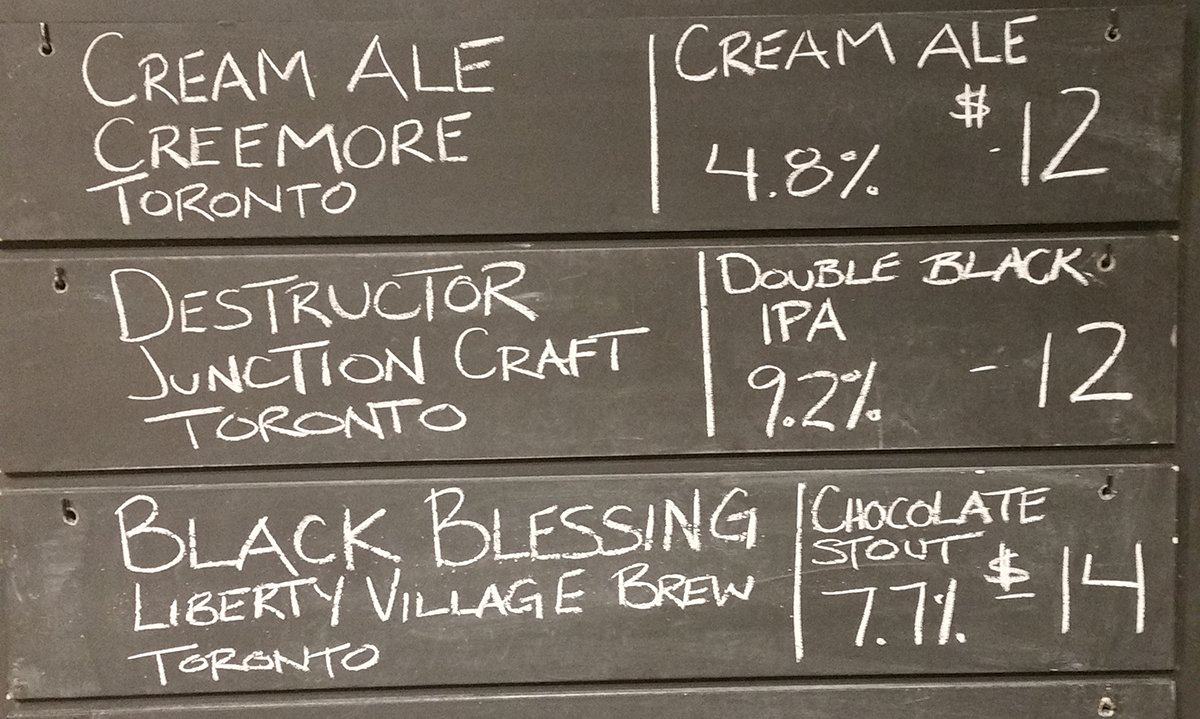 CREAM ALE
CREEMORE
TORONTO
CREAM ALE
$ - 12
4.8%
DESTRUCTOR
JUNCTION CRAFT
TORONTO
DOUBLE BLACK
IPA
9.2% - 12
BLACK BLESSING
LIBERTY VILLAGE BREW
TORONTO
CHOCOLATE
STOUT $ - 14
7.7%